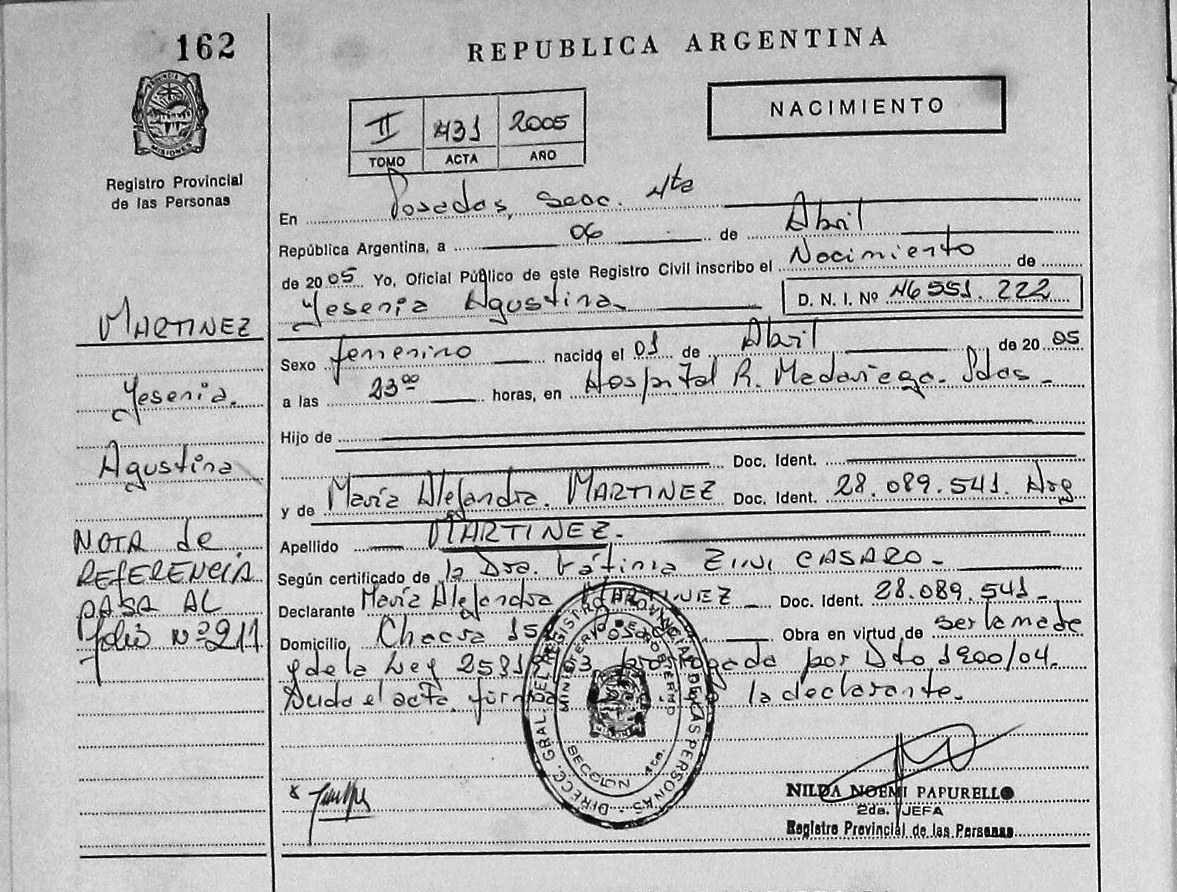 162
REPUBLICA ARGENTINA
NACIMIENTO
II 431 2005
TOMO ACTA AÑO
PROVINCIA DE MISIONES
Registro Provincial
de las Personas
En Posadas, Secc. 4ta
República Argentina, a 06 de Abril
de 2005 Yo, Oficial Público de este Registro Civil inscribo el Nacimiento de
Yesenia Agustina
D. N. I. Nº 46 551. 222
MARTINEZ
Yesenia.
Agustina
Sexo femenino nacido el 01 de Abril de 2005
a las 23⁰⁰ horas, en Hospital R. Madariaga. Pdas -
Hijo de
Doc. Ident.
y de María Alejandra. MARTINEZ Doc. Ident. 28.089.541. Arg
Apellido MARTINEZ.
Según certificado de la Dra. Fátima ZINI CASARO -
Declarante María Alejandra MARTINEZ - Doc. Ident. 28.089.541 -
Domicilio Chacra 15 Obra en virtud de ser la madre
y de la Ley 2591 por Dto 1900/04.
el acta. la declarante.
NOTA de
REFERENCIA
PASA AL
folio nº 211
DIRECC. GRAL. DEL REGISTRO PROVINCIAL DE LAS PERSONAS
MINISTERIO DE GOBIERNO
SECCION 4ta.
NILDA NOEMI PAPURELLO
2da. JEFA
Registro Provincial de las Personas